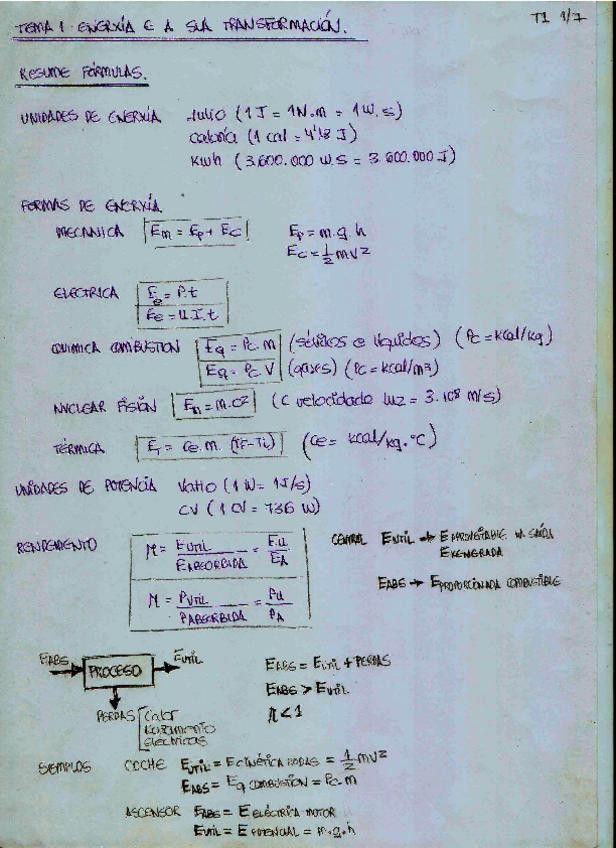 TEMA 1: ENERXÍA E A SUA TRANSFORMACIÓN. T1 1/7
RESUME FÓRMULAS.
UNIDADES DE ENERXÍA Julio (1J = 1N.m = 1W.s)
Caloría (1 cal = 4'18 J)
Kwh (3.600.000 W.S = 3.600.000 J)
FORMAS DE ENERXÍA.
MECÁNICA Em = Ep + Ec Ep = m.g.h
Ec = 1/2 mv2
ELÉCTRICA Ee = P.t
Ee = U.I.t
QUIMICA COMBUSTION Eq = Pc.m (sólidos e líquidos) (Pc = Kcal/kg)
Eq = Pc.V (gases) (Pc = kcal/m3)
NUCLEAR FISIÓN En = m.c2 (C velocidade luz = 3.108 m/s)
TÉRMICA ET = Ce.m.(TF-Ti) (Ce = kcal/kg.°C)
UNIDADES DE POTENCIA Vatio (1W = 1J/s)
CV (1 CV = 736 W)
RENDEMENTO η = EUTIL/EABSORBIDA = EU/EA CENTRAL EUTIL → E APROVEITABLE NA SAÍDA
EXENERADA
EABS → EPROPORCIONADA COMBUSTIBLE
η = PUTIL/PABSORBIDA = PU/PA
EABS PROCESO EUTIL EABS = EUTIL + PERDAS
EABS > EUTIL
PERDAS Calor η < 1
Rozamento
electricas
EXEMPLOS COCHE EUTIL = E CINÉTICA RODAS = 1/2 mv2
EABS = Eq COMBUSTION = Pc.m
ASCENSOR EABS = E ELÉCTRICA MOTOR
EUTIL = E POTENCIAL = m.g.h